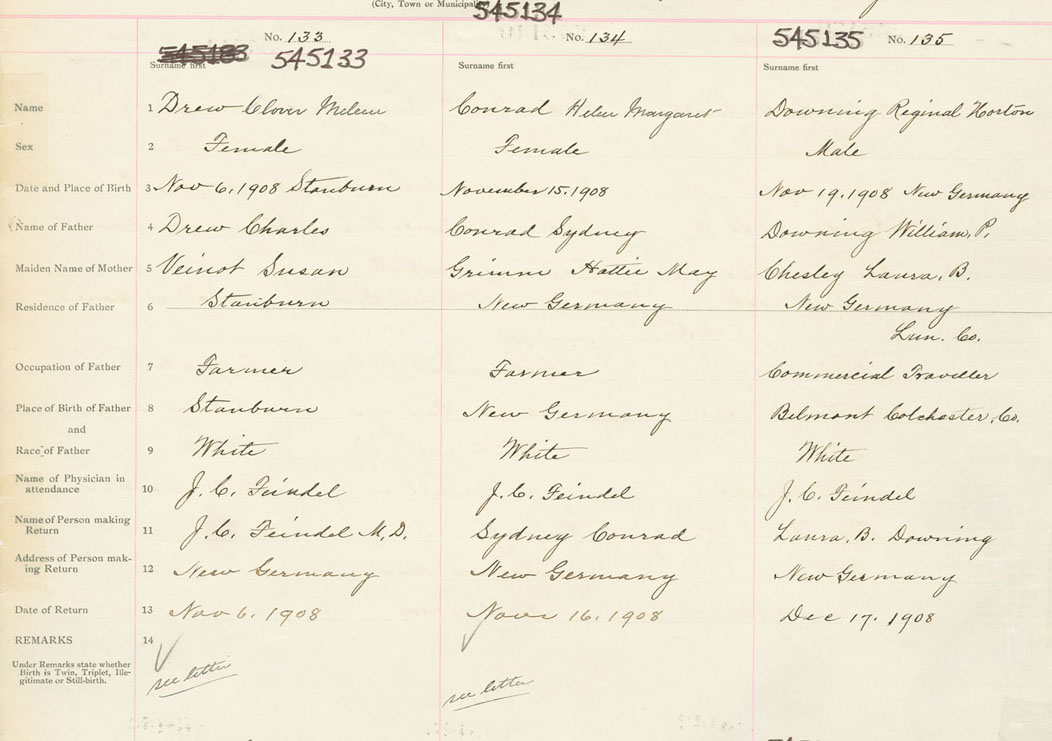 (City, Town or Municipal
545134
No. 133
No. 134
545135 No. 135
545133 545133
Surname first
Surname first
Surname first
Name 1 Drew Clover Melene Conrad Helen Margaret Downing Reginal Horton
Sex 2 Female Female Male
Date and Place of Birth 3 Nov 6, 1908 Stanburn November 15, 1908 Nov 19, 1908 New Germany
Name of Father 4 Drew Charles Conrad Sydney Downing William, P.
Maiden Name of Mother 5 Veinot Susan Grimm Hattie May Chesley Laura, B.
Residence of Father 6 Stanburn New Germany New Germany
Lun. Co.
Occupation of Father 7 Farmer Farmer Commercial Traveller
Place of Birth of Father 8 Stanburn New Germany Belmont Colchester, Co.
and
Race of Father 9 White White White
Name of Physician in
attendance 10 J. C. Feindel J. C. Feindel J. C. Feindel
Name of Person making
Return 11 J. C. Feindel M, D. Sydney Conrad Laura, B. Downing
Address of Person mak-
ing Return 12 New Germany New Germany New Germany
Date of Return 13 Nov 6, 1908 Nov 16, 1908 Dec 17, 1908
REMARKS 14
Under Remarks state whether
Birth is Twin, Triplet, Ille-
gitimate or Still-birth.
see letter see letter